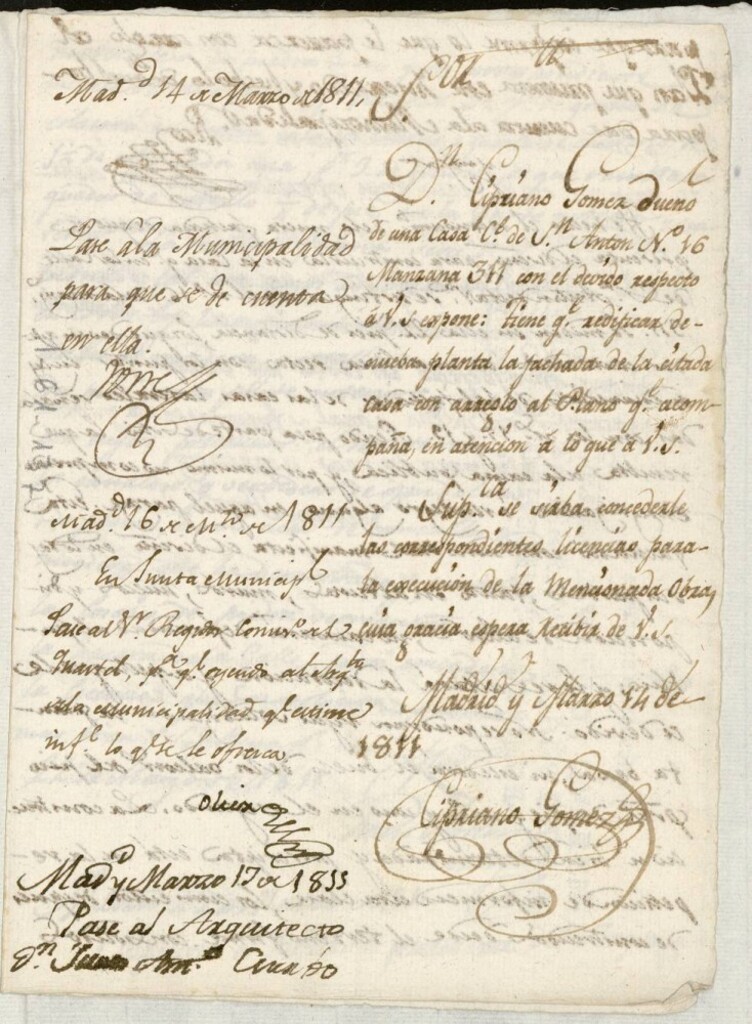 Mad.d 14 de Marzo de 1811,
Pase a la Municipalidad
para que se de cuenta
en ella.
Mad.d 16 de Mzo de 1811
En Junta Municipl
Pase al Sr. Regidor Comiso. del
Quartel, pa. qe. oyendo al Arqto
de la Municipalidad qe. estime
infe. lo qe. se le ofrezca
Madd y Marzo 17 de 1811
Pase al Arquitecto
Dn. Juan Anto.
Dn. Cipriano Gomez dueño
de una Casa Ce. de Sn. Anton No. 16
Manzana 311 con el devido respecto
á V.S expone: tiene qe. redificar de
nueba planta la fachada de la citada
casa con arreglo al Plano qe. acom-
paña, en atencion á lo que á V.S.
Supca. se sirba concederle
las correspondientes licencias para
la execución de la Mencionada Obra,
cuia gracia espera recibir de V.S.
Madrid y Marzo 14 de
1811
Cipriano Gomez